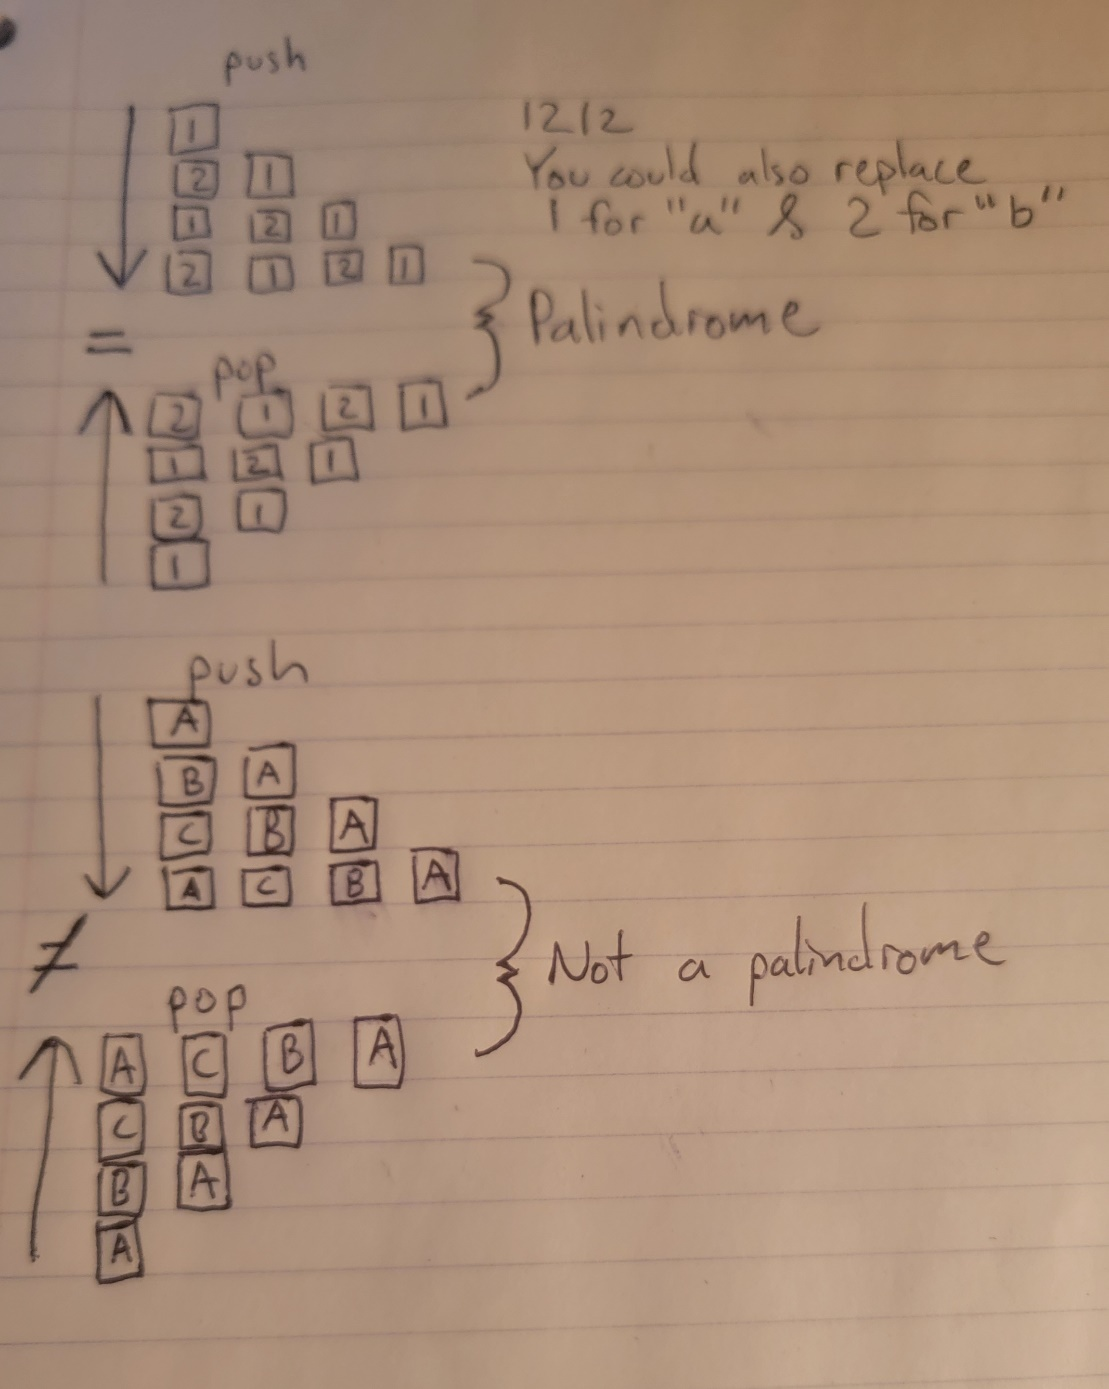 push
1
2 1
1 2 1
2 1 2 1
1212
You could also replace
1 for "a" & 2 for "b"
=
Palindrome
pop
2 1 2 1
1 2 1
2 1
1
push
A
B A
C B A
A C B A
≠
Not a palindrome
pop
A C B A
C B A
B A
A